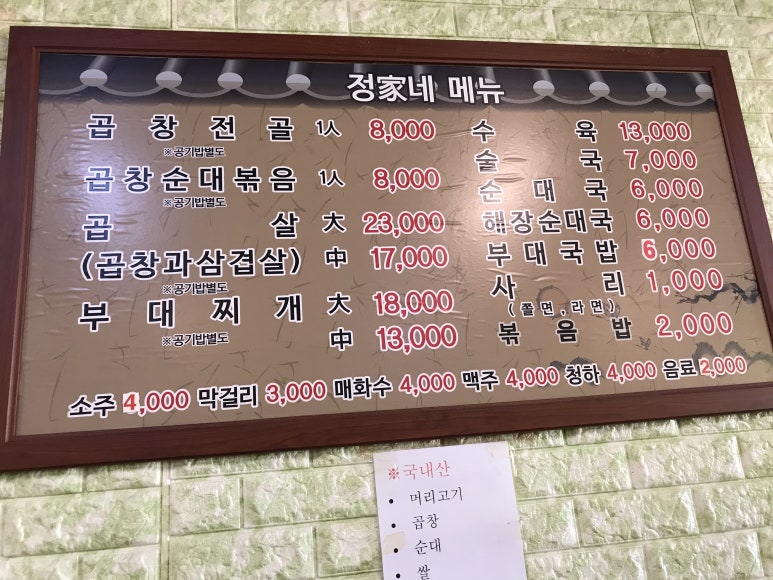 정家네 메뉴
곱창전골 1人 8,000
※공기밥별도
곱창순대볶음 1人 8,000
※공기밥별도
곱 살 大 23,000
(곱창과삼겹살) 中 17,000
※공기밥별도
부대찌개 大 18,000
※공기밥별도 中 13,000
수 육 13,000
술 국 7,000
순대국 6,000
해장순대국 6,000
부대국밥 6,000
사 리 1,000
(쫄면,라면)
볶음밥 2,000
소주 4,000 막걸리 3,000 매화수 4,000 맥주 4,000 청하 4,000 음료 2,000
※국내산
• 머리고기
• 곱창
• 순대
• 쌀